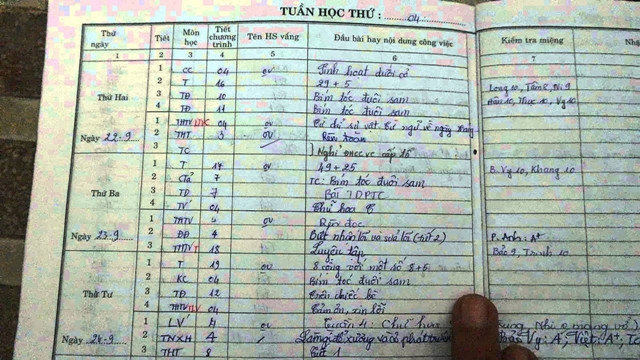 TUẦN HỌC THỨ : 04
Thứ ngày Tiết Môn học Tiết chương trình Tên HS vắng Đầu bài hay nội dung công việc Kiểm tra miệng Nhậ
1 2 3 4 5 6 7
1 CC 04 Sinh hoạt dưới cờ
2 T 16 29 + 5 Long 10, Tâm 8, Nhi 9
Thứ Hai 3 TĐ 10 Bím tóc đuôi sam
4 TĐ 11 Bím tóc đuôi sam
1 04
Ngày 22-9 2 THT 3 Rèn toán
3 TC Nghỉ
1 T 17 49 + 25 B. Vy 10, Khang 10
2 7 TC: Bím tóc đuôi sam
Thứ Ba 3 TD 7 Bài 7 DPTC
4 TV 04 Chữ hoa C
1 THTV 4 Rèn đọc
Ngày 23-9 2 ĐĐ 4 Biết nhận lỗi và sửa lỗi (tiết 2) P. Anh: A+
3 18 Luyện tập Bảo 9, Trinh 10
1 T 19 8 cộng với một số 8+5
2 KC 04 Bím tóc đuôi sam
Thứ Tư 3 TĐ 12 Trên chiếc bè
4 04 Cảm ơn, xin lỗi
1 LV 4 Tuần 4: Chữ hoa
Ngày 24-9 2 TNXH 4 Làm gì để xương và cơ phát triển Vy: A, Việt: A
3 THT 8 Tiết 1